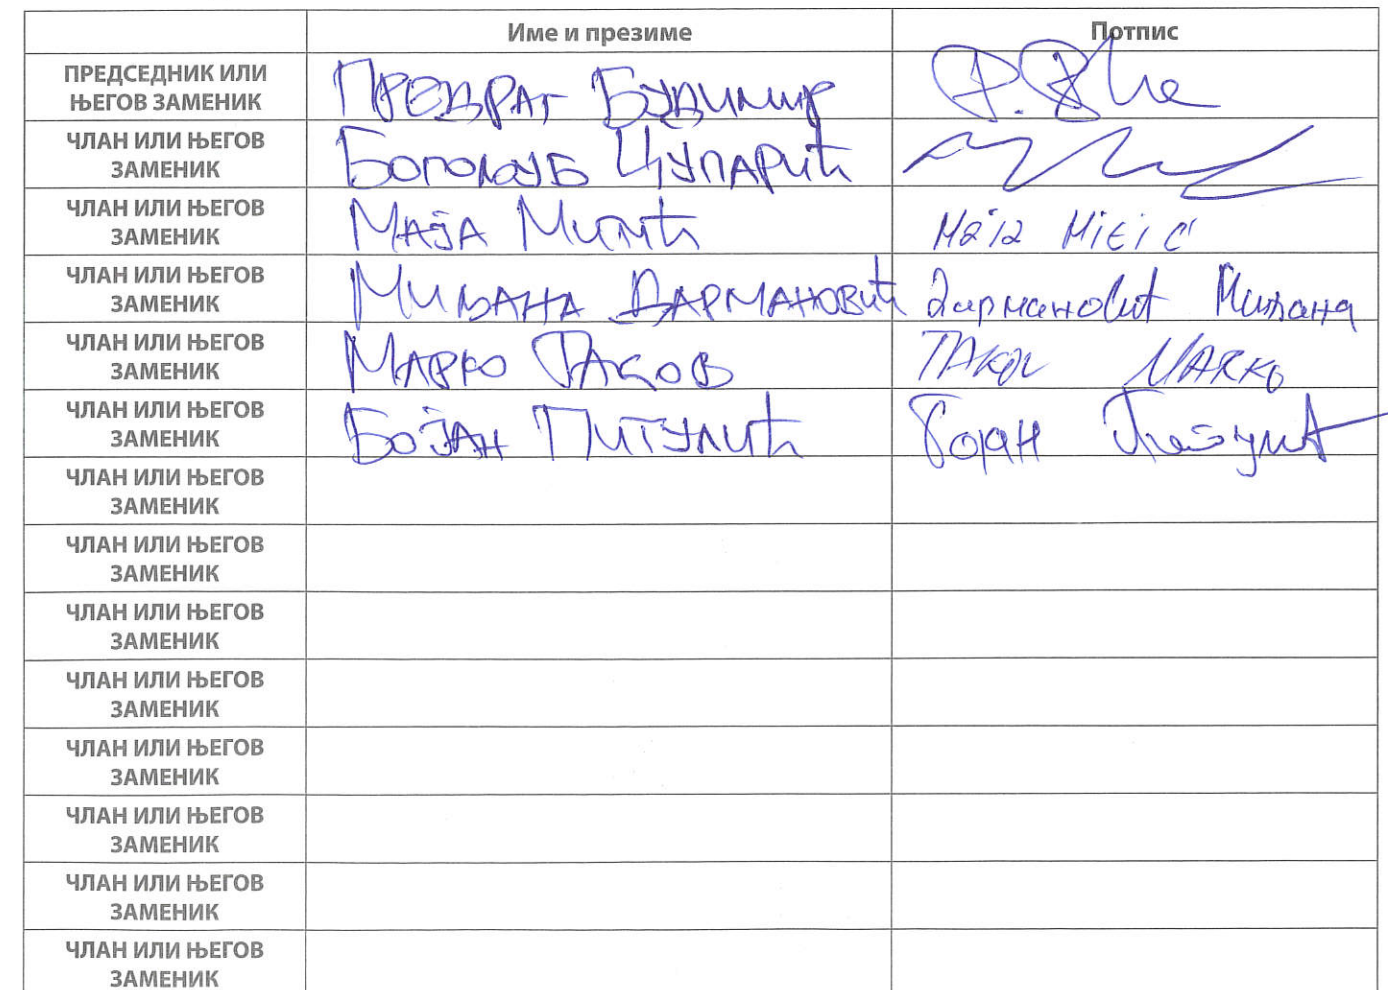 Име и презиме Потпис
ПРЕДСЕДНИК ИЛИ
ЊЕГОВ ЗАМЕНИК
ПРЕДРАГ БУДИМИР
ЧЛАН ИЛИ ЊЕГОВ
ЗАМЕНИК
БОГОЉУБ ЦУПАРИЋ
ЧЛАН ИЛИ ЊЕГОВ
ЗАМЕНИК
МАЈА
ЧЛАН ИЛИ ЊЕГОВ
ЗАМЕНИК
МИЉАНА ДАРМАНОВИЋ Дармановић Миљана
ЧЛАН ИЛИ ЊЕГОВ
ЗАМЕНИК
МАРКО ЂАКОВ MARKO
ЧЛАН ИЛИ ЊЕГОВ
ЗАМЕНИК
БОЈАН ПИТУЛИЋ Бојан Питулић
ЧЛАН ИЛИ ЊЕГОВ
ЗАМЕНИК
ЧЛАН ИЛИ ЊЕГОВ
ЗАМЕНИК
ЧЛАН ИЛИ ЊЕГОВ
ЗАМЕНИК
ЧЛАН ИЛИ ЊЕГОВ
ЗАМЕНИК
ЧЛАН ИЛИ ЊЕГОВ
ЗАМЕНИК
ЧЛАН ИЛИ ЊЕГОВ
ЗАМЕНИК
ЧЛАН ИЛИ ЊЕГОВ
ЗАМЕНИК
ЧЛАН ИЛИ ЊЕГОВ
ЗАМЕНИК